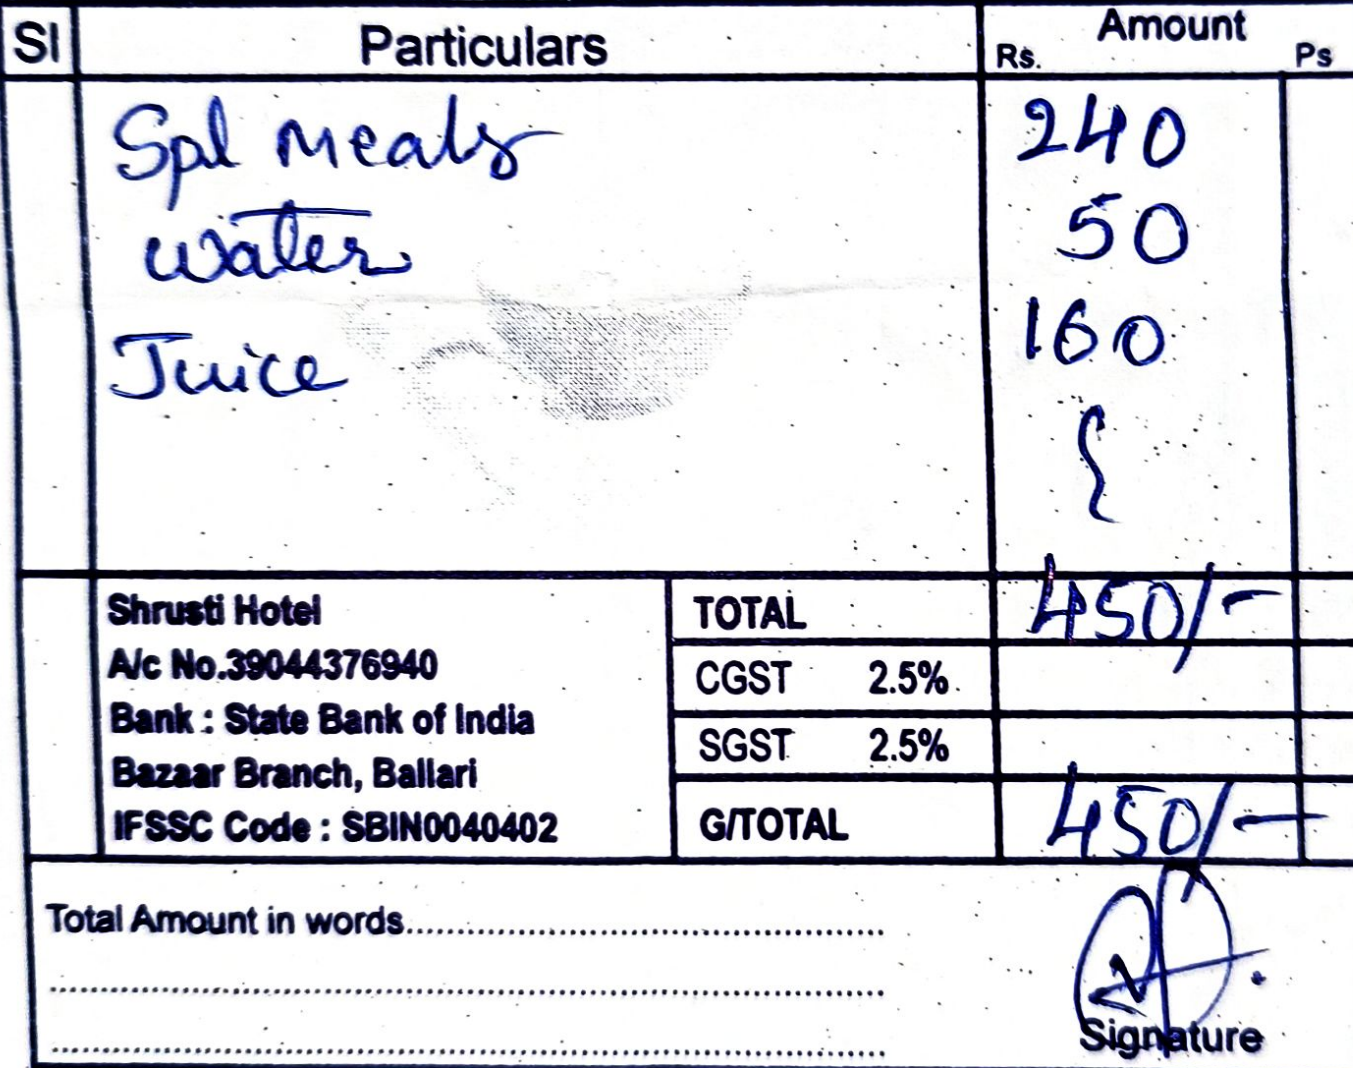 Sl Particulars Amount
Rs. Ps
Spl Meals 240
Water 50
Juice 160
Shrusti Hotel
A/c No.39044376940
Bank : State Bank of India
Bazaar Branch, Ballari
IFSSC Code : SBIN0040402
TOTAL 450/-
CGST 2.5%
SGST 2.5%
G/TOTAL 450/-
Total Amount in words
Signature